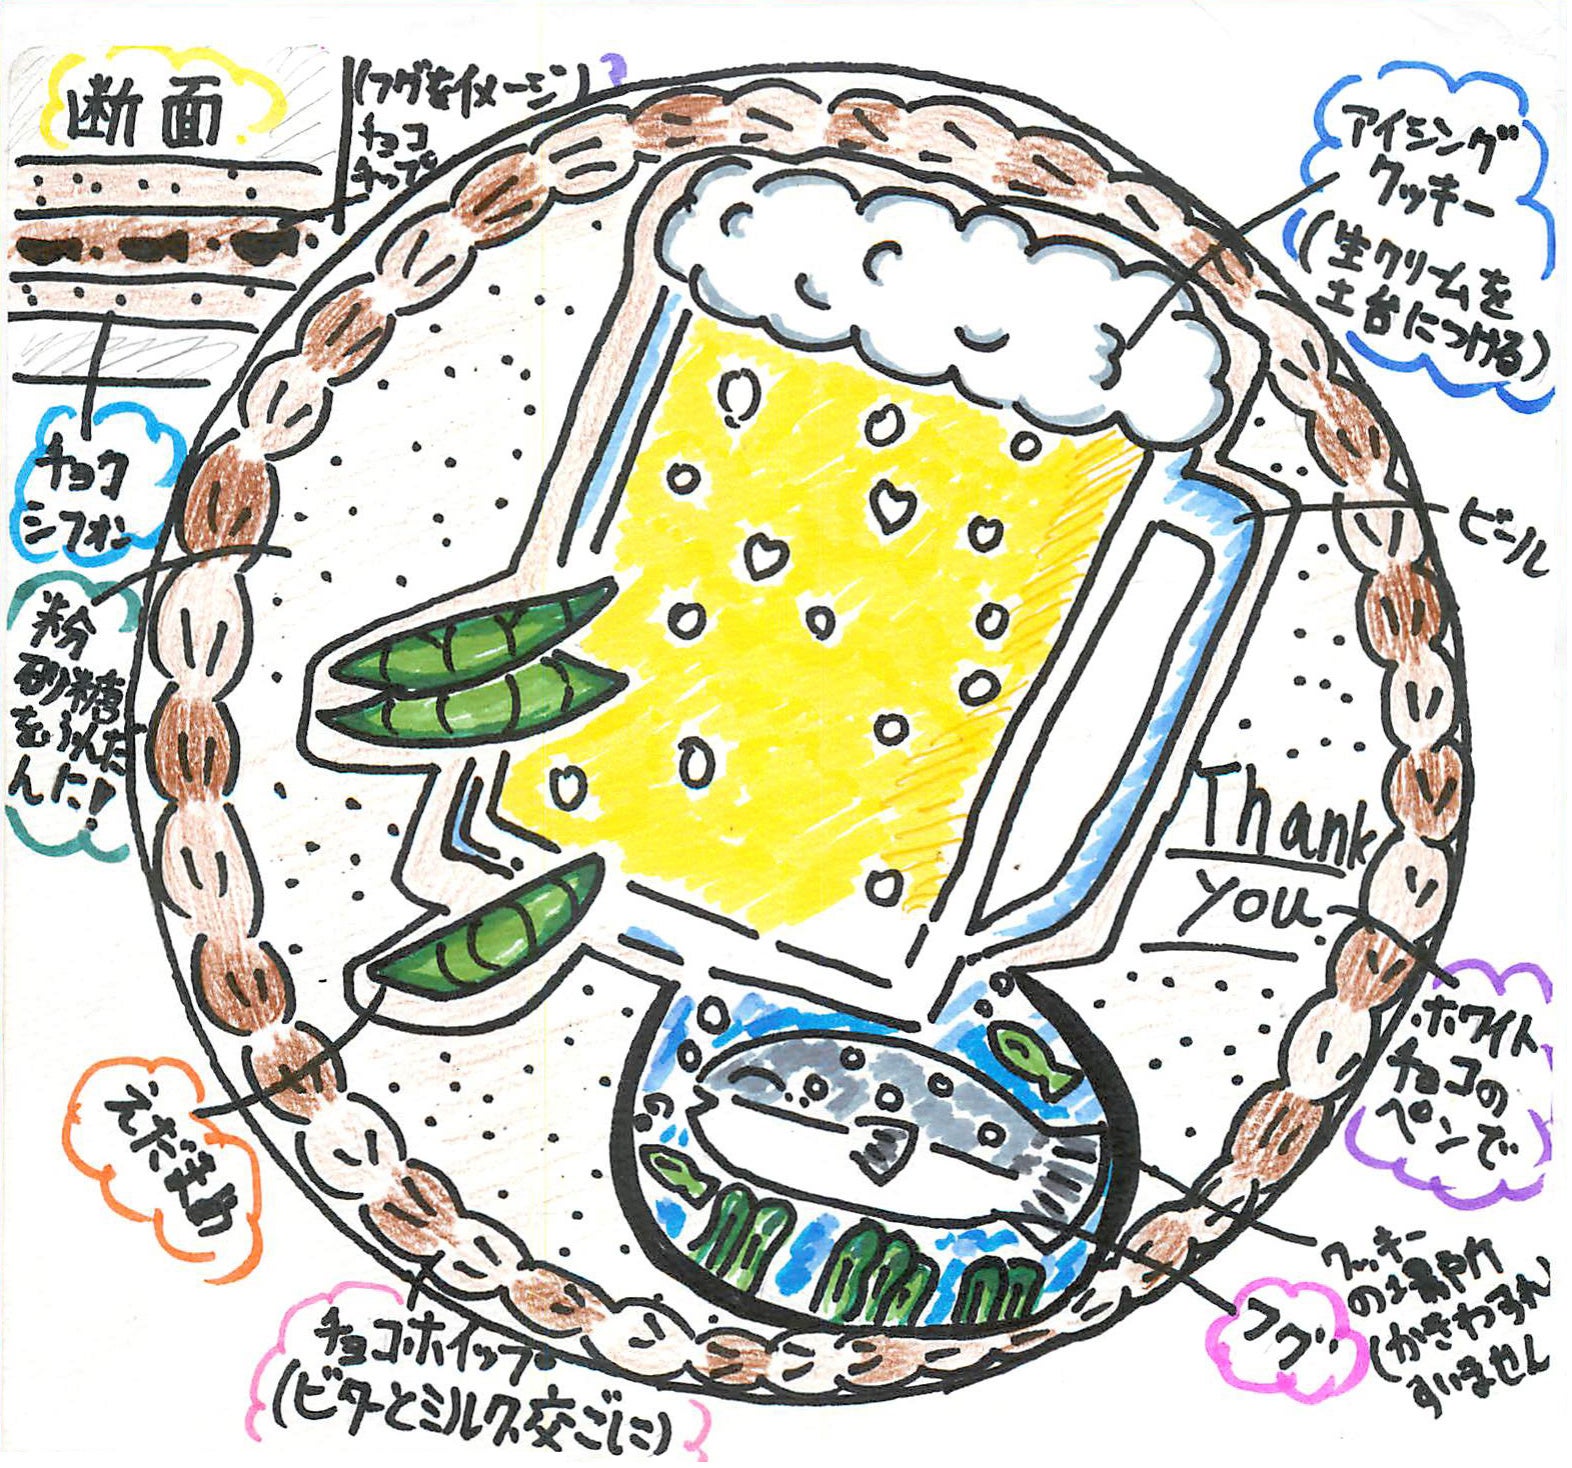 断面
(フグをイメージ)
チョコ
チップ
アイシング
クッキー
(生クリームを
土台につける)
チョコ
シフォン
ビール
粉
砂糖
をふんだ
んに!
Thank
you
ホワイト
チョコの
ペンで
クッキー
(かきわすれ
すいません
フグ
チョコホイップ
(ビターとミルク交ごに)